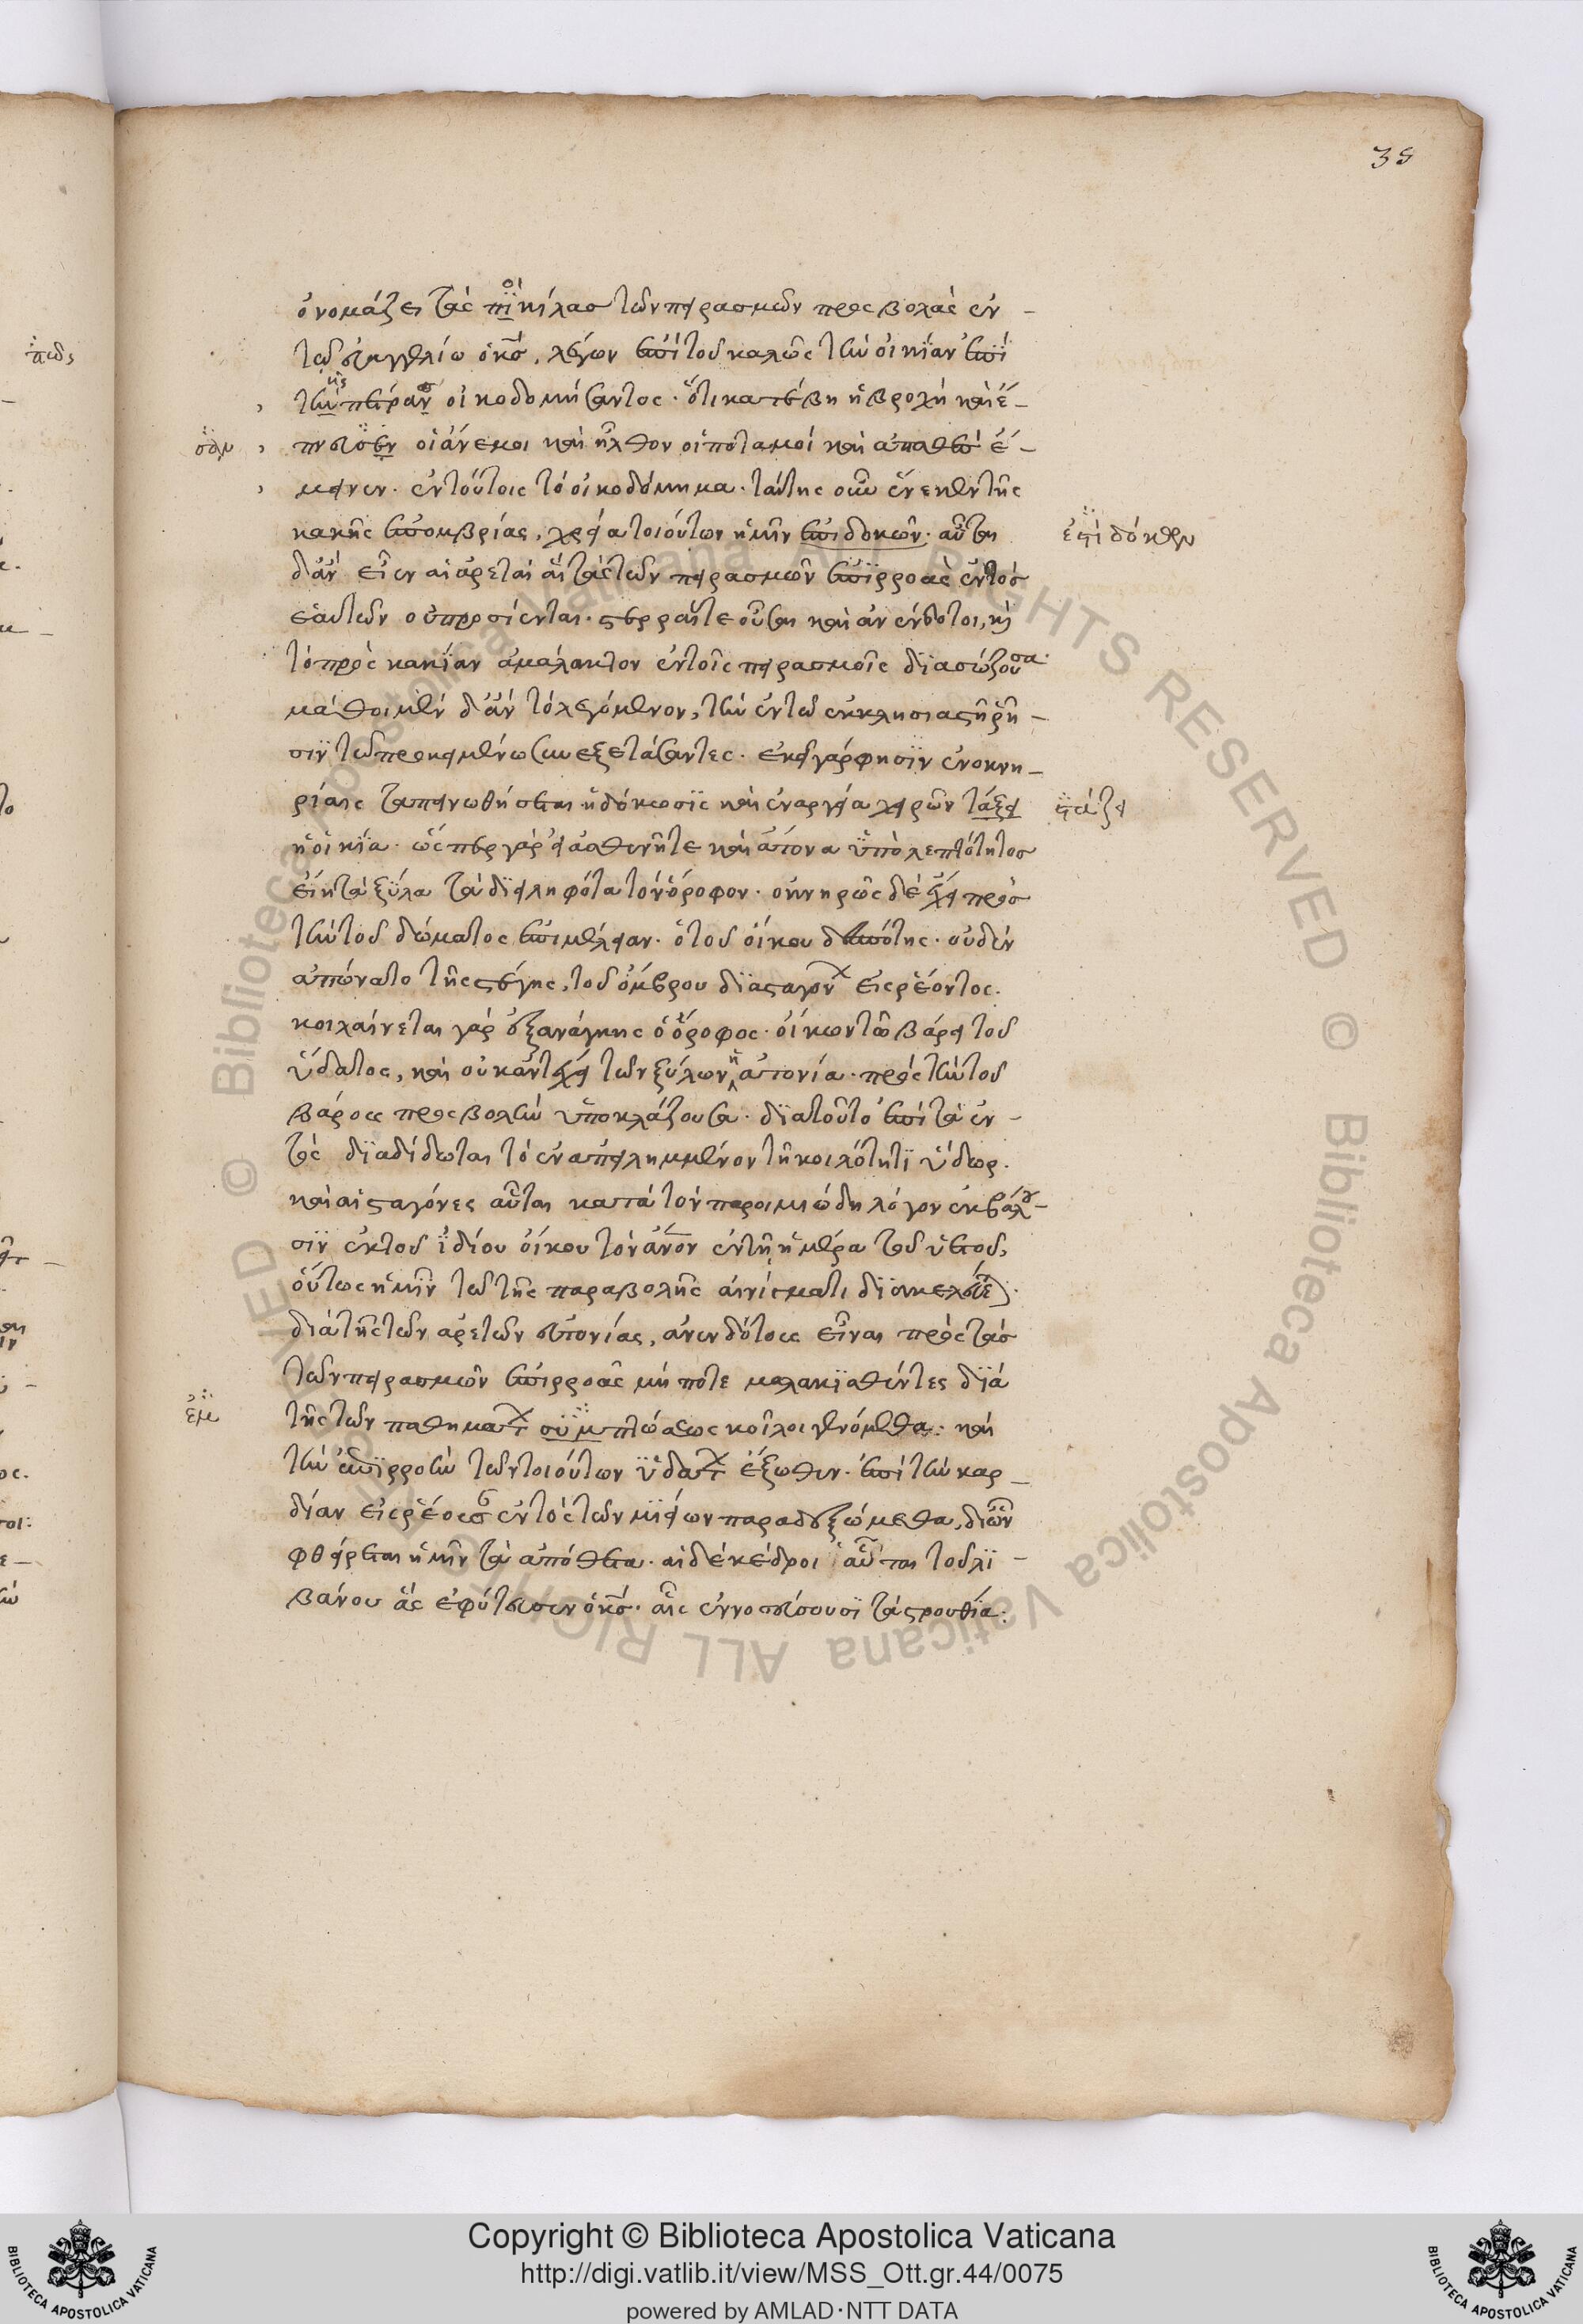 38
ὀνομάζει τὰς πικίλας τῶν πειρασμῶν προσβολὰς ἐν
οἱ
τῶ εὐαγγελίω ὁ κς, λέγων ἐπὶ τοῦ καλῶς τὴν οἰκίαν ἐπὶ
τὴν πέτραν οἰκοδομήσαντος. ὅτι κατέβη ἡ βροχὴ καὶ ἔ-
πνευσεν οἱ ἄνεμοι καὶ ἦλθον οἱ ποταμοὶ καὶ ἀπαθὲς ἔ-
μεινεν. ἐν τούτοις τὸ οἰκοδόμημα. ταύτης οὖν ἕνεκεν τῆς
κακῆς ἐπομβρίας, χρεία τοιούτων ἡμῖν ἐπιδοκῶν. αὗται
ἐπὶ δόκων
δἂν εἶεν αἱ ἀρεταὶ αἳ τὰς τῶν πειρασμῶν ἐπιρροὰς ἐντὸς
ἑαυτῶν οὐ προσίενται. στερραί τε οὖσαι καὶ ἀνένδοτοι, κ
τὸ πρὸς κακίαν ἀμάλακτον ἐν τοῖς πειρασμοῖς διασώζουσαι.
μάθοιμεν δἂν τὸ λεγόμενον, τὴν ἐν τῶ ἐκκλησιαστῆ ῥῆ-
σιν τῶ προκειμένω συνεξετάσαντες. ἐκεῖ γάρ φησιν ἐν ὀκνη-
ρίαις ταπεινωθήσεται ἡ δόκωσις καὶ ἐν ἀργεία χειρῶν τάξει
στάξει
ἡ οἰκία. ὥσπερ γὰρ εἰ ἀσθενῆ τε καὶ ἄτονα ὑπὸ λεπτότητος
εἴη τὰ ξύλα τὰ διειληφότα τὸν ὄροφον. ὀκνηρῶς δὲ ἔχει πρὸς
τὴν τοῦ δώματος ἐπιμέλειαν. ὁ τοῦ οἴκου δεσπότης. οὐδὲν
ἀπώνατο τῆς στέγης, τοῦ ὄμβρου διὰ σταγόν εἰσρέοντος.
κοιλαίνεται γὰρ ἐξανάγκης ὁ ὄροφος. εἴκων τῶ βάρει τοῦ
ὕδατος, καὶ οὐκ ἀντέχει τῶν ξύλων ἡ ἀτονία. πρὸς τὴν τοῦ
βάρους προσβολὴν ὑποκλάζουσα. διὰ τοῦτο ἐπὶ τὰ ἐν-
τὸς διαδίδοται τὸ ἐναπειλημμένον τῆ κοιλότητι ὕδωρ.
καὶ αἱ σταγόνες αὗται κατὰ τὸν παροιμιώδη λόγον ἐκβάλου-
σιν ἐκ τοῦ ἰδίου οἴκου τὸν ἄνον ἐν τῆ ἡμέρα τοῦ ὑετοῦ,
οὕτως ἡμῖν τῶ τῆς παραβολῆς αἰνίγματι διακελεύε.
διὰ τῆς τῶν ἀρετῶν εὐτονίας, ἀνενδότους εἶναι πρὸς τὰς
τῶν πειρασμῶν ἐπιρροὰς μήποτε μαλακιαθέντες διὰ
τῆς τῶν παθηματ συμπτώσεως κοῖλοι γενόμεθα. καὶ
ἐμ
τὴν ἐπιρροὴν τῶν τοιούτων ὑδατ ἔξωθεν. ἐπὶ τὴν καρ-
δίαν εἰσρέουσ ἐντὸς τῶν μείων παραδεξώμεθα, διὧν
φθείρεται ἡμῖν τὰ ἀπόθετα. αἱ δὲ κέδροι αὗται τοῦ λι-
βάνου ἃς ἐφύτευσεν ὁ κς. αἷς ἐννοσσεύσουσι τὰ στρουθία.
Copyright © Biblioteca Apostolica Vaticana
http://digi.vatlib.it/view/MSS_Ott.gr.44/0075
powered by AMLAD·NTT DATA